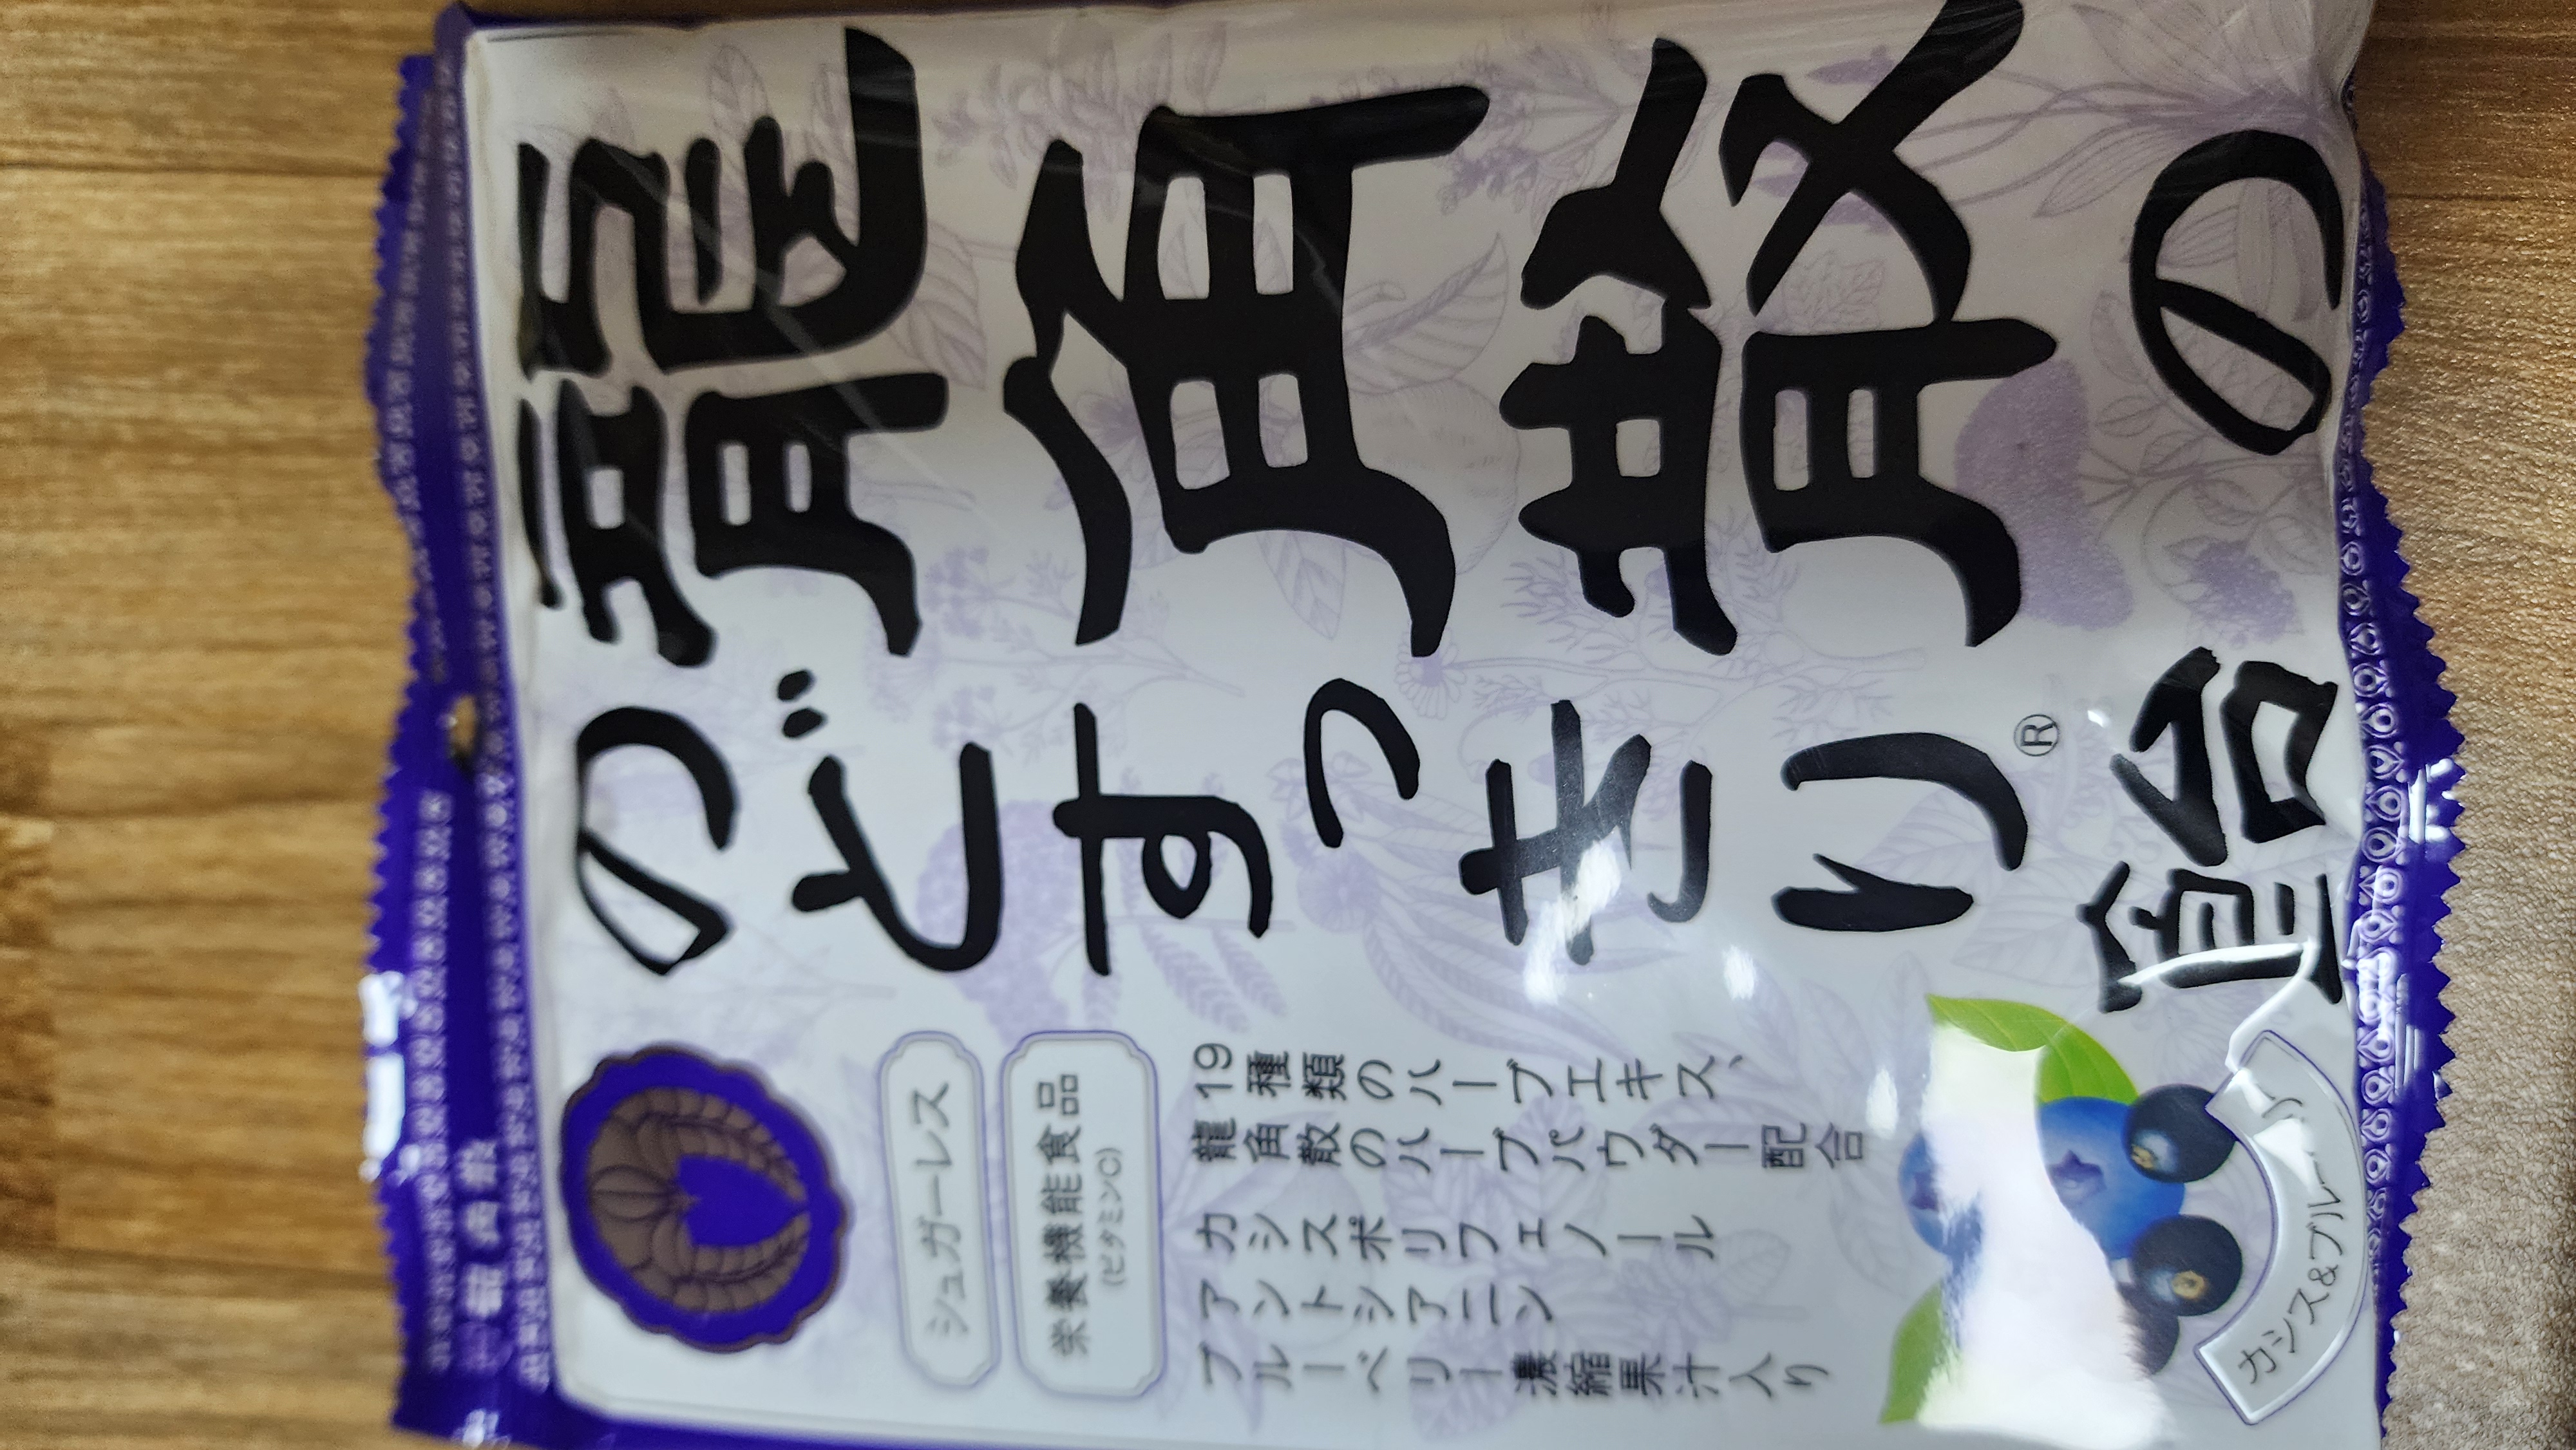 龍角散の
のどすっきり®飴
シュガーレス
栄養機能食品
(ビタミンC)
19種類のハーブエキス、
龍角散のハーブパウダー配合
カシスポリフェノール
アントシアニン
ブルーベリー濃縮果汁入り
カシス&ブルー
龍角散